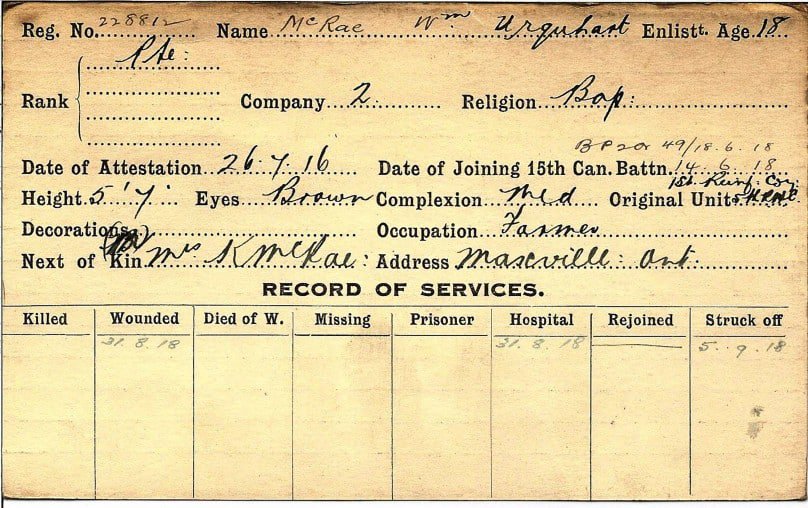 Reg. No. 228812 Name McRae Wm Urquhart Enlistt. Age 18
Pte:
Rank Company 2 Religion Bap:
49/18.6.18
Date of Attestation 26.7.16 Date of Joining 15th Can. Battn. 14.6.18
1st Reinf. Coy.
Height 5'7" Eyes Brown Complexion Med Original Unit
Decorations Occupation Farmer
Next of Kin Mrs K McRae: Address Maxville: Ont.
RECORD OF SERVICES.
Killed Wounded Died of W. Missing Prisoner Hospital Rejoined Struck off
31.8.18 31.8.18 5.9.18